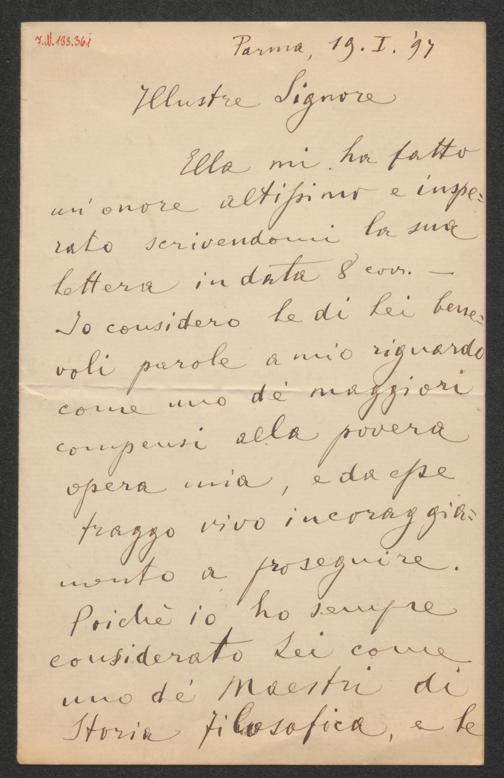 I.N. 133.361
Parma, 19. I. '97
Illustre Signore
Ella mi ha fatto
un' onore altissimo e inspe=
rato scrivendomi la sua
lettera in data 8 corr. —
Io considero le di Lei bene=
voli parole a mio riguardo
come uno de' maggiori
compensi alla povera
opera mia, e da esse
traggo vivo incoraggia=
mento a proseguire.
Poichè io ho sempre
considerato Lei come
uno de' Maestri di
Storia Filosofica, e le